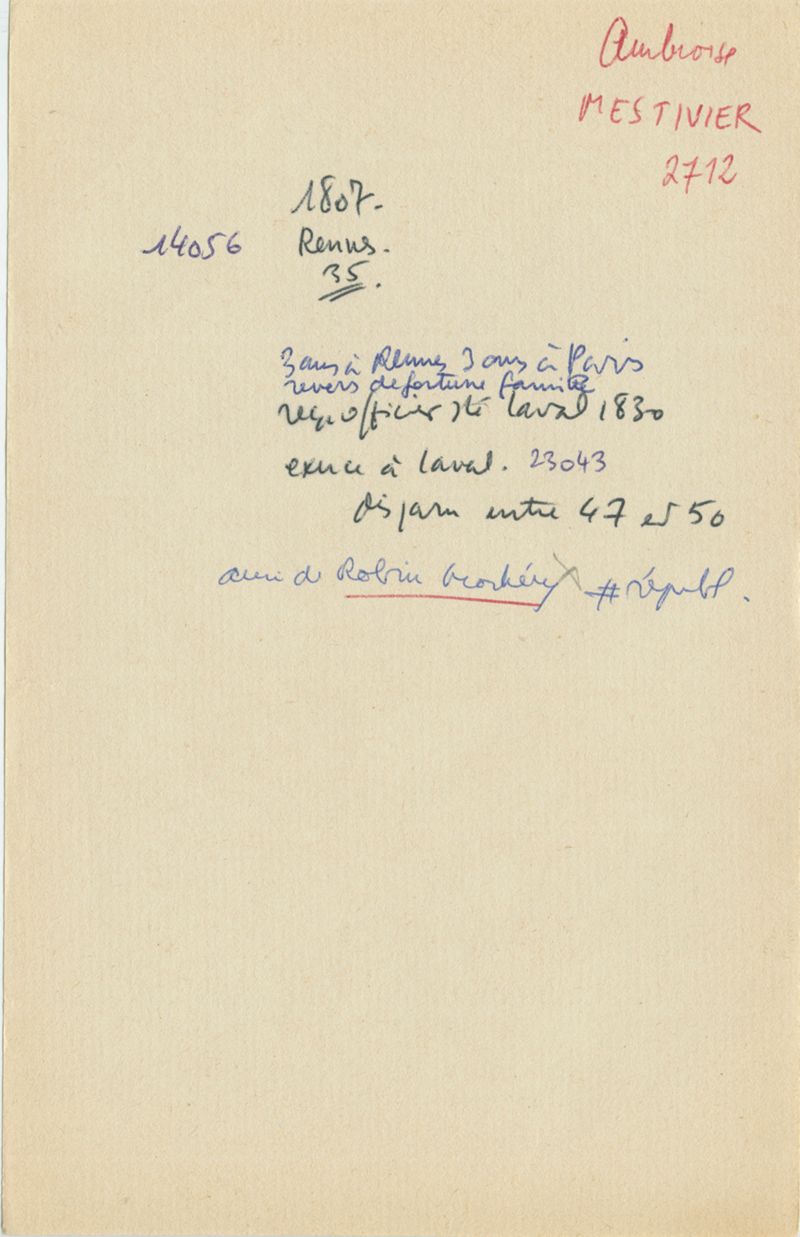 Ambroise
MESTIVIER
2712
1807.
14056 Rennes.
35.
3 ans à Rennes 3 ans à Paris
revers de fortune famille
reçu officier sté Laval 1830
exerce à Laval. 23043
disparu entre 47 et 50
ami de Robin # républ.